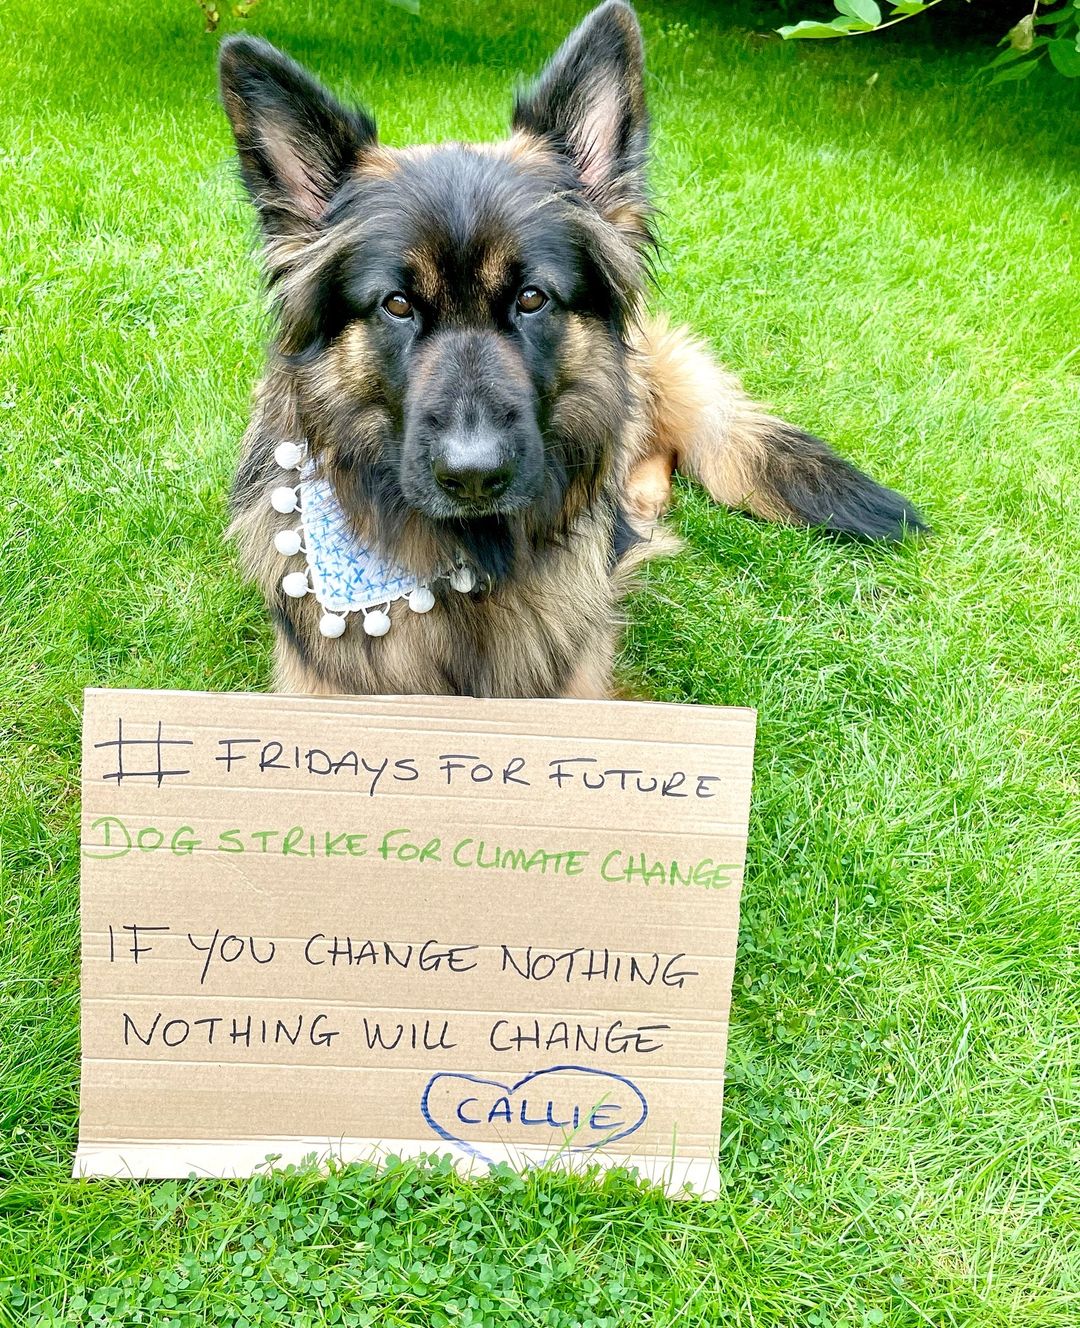 # FRIDAYS FOR FUTURE
DOG STRIKE FOR CLIMATE CHANGE
IF YOU CHANGE NOTHING
NOTHING WILL CHANGE
CALLIE